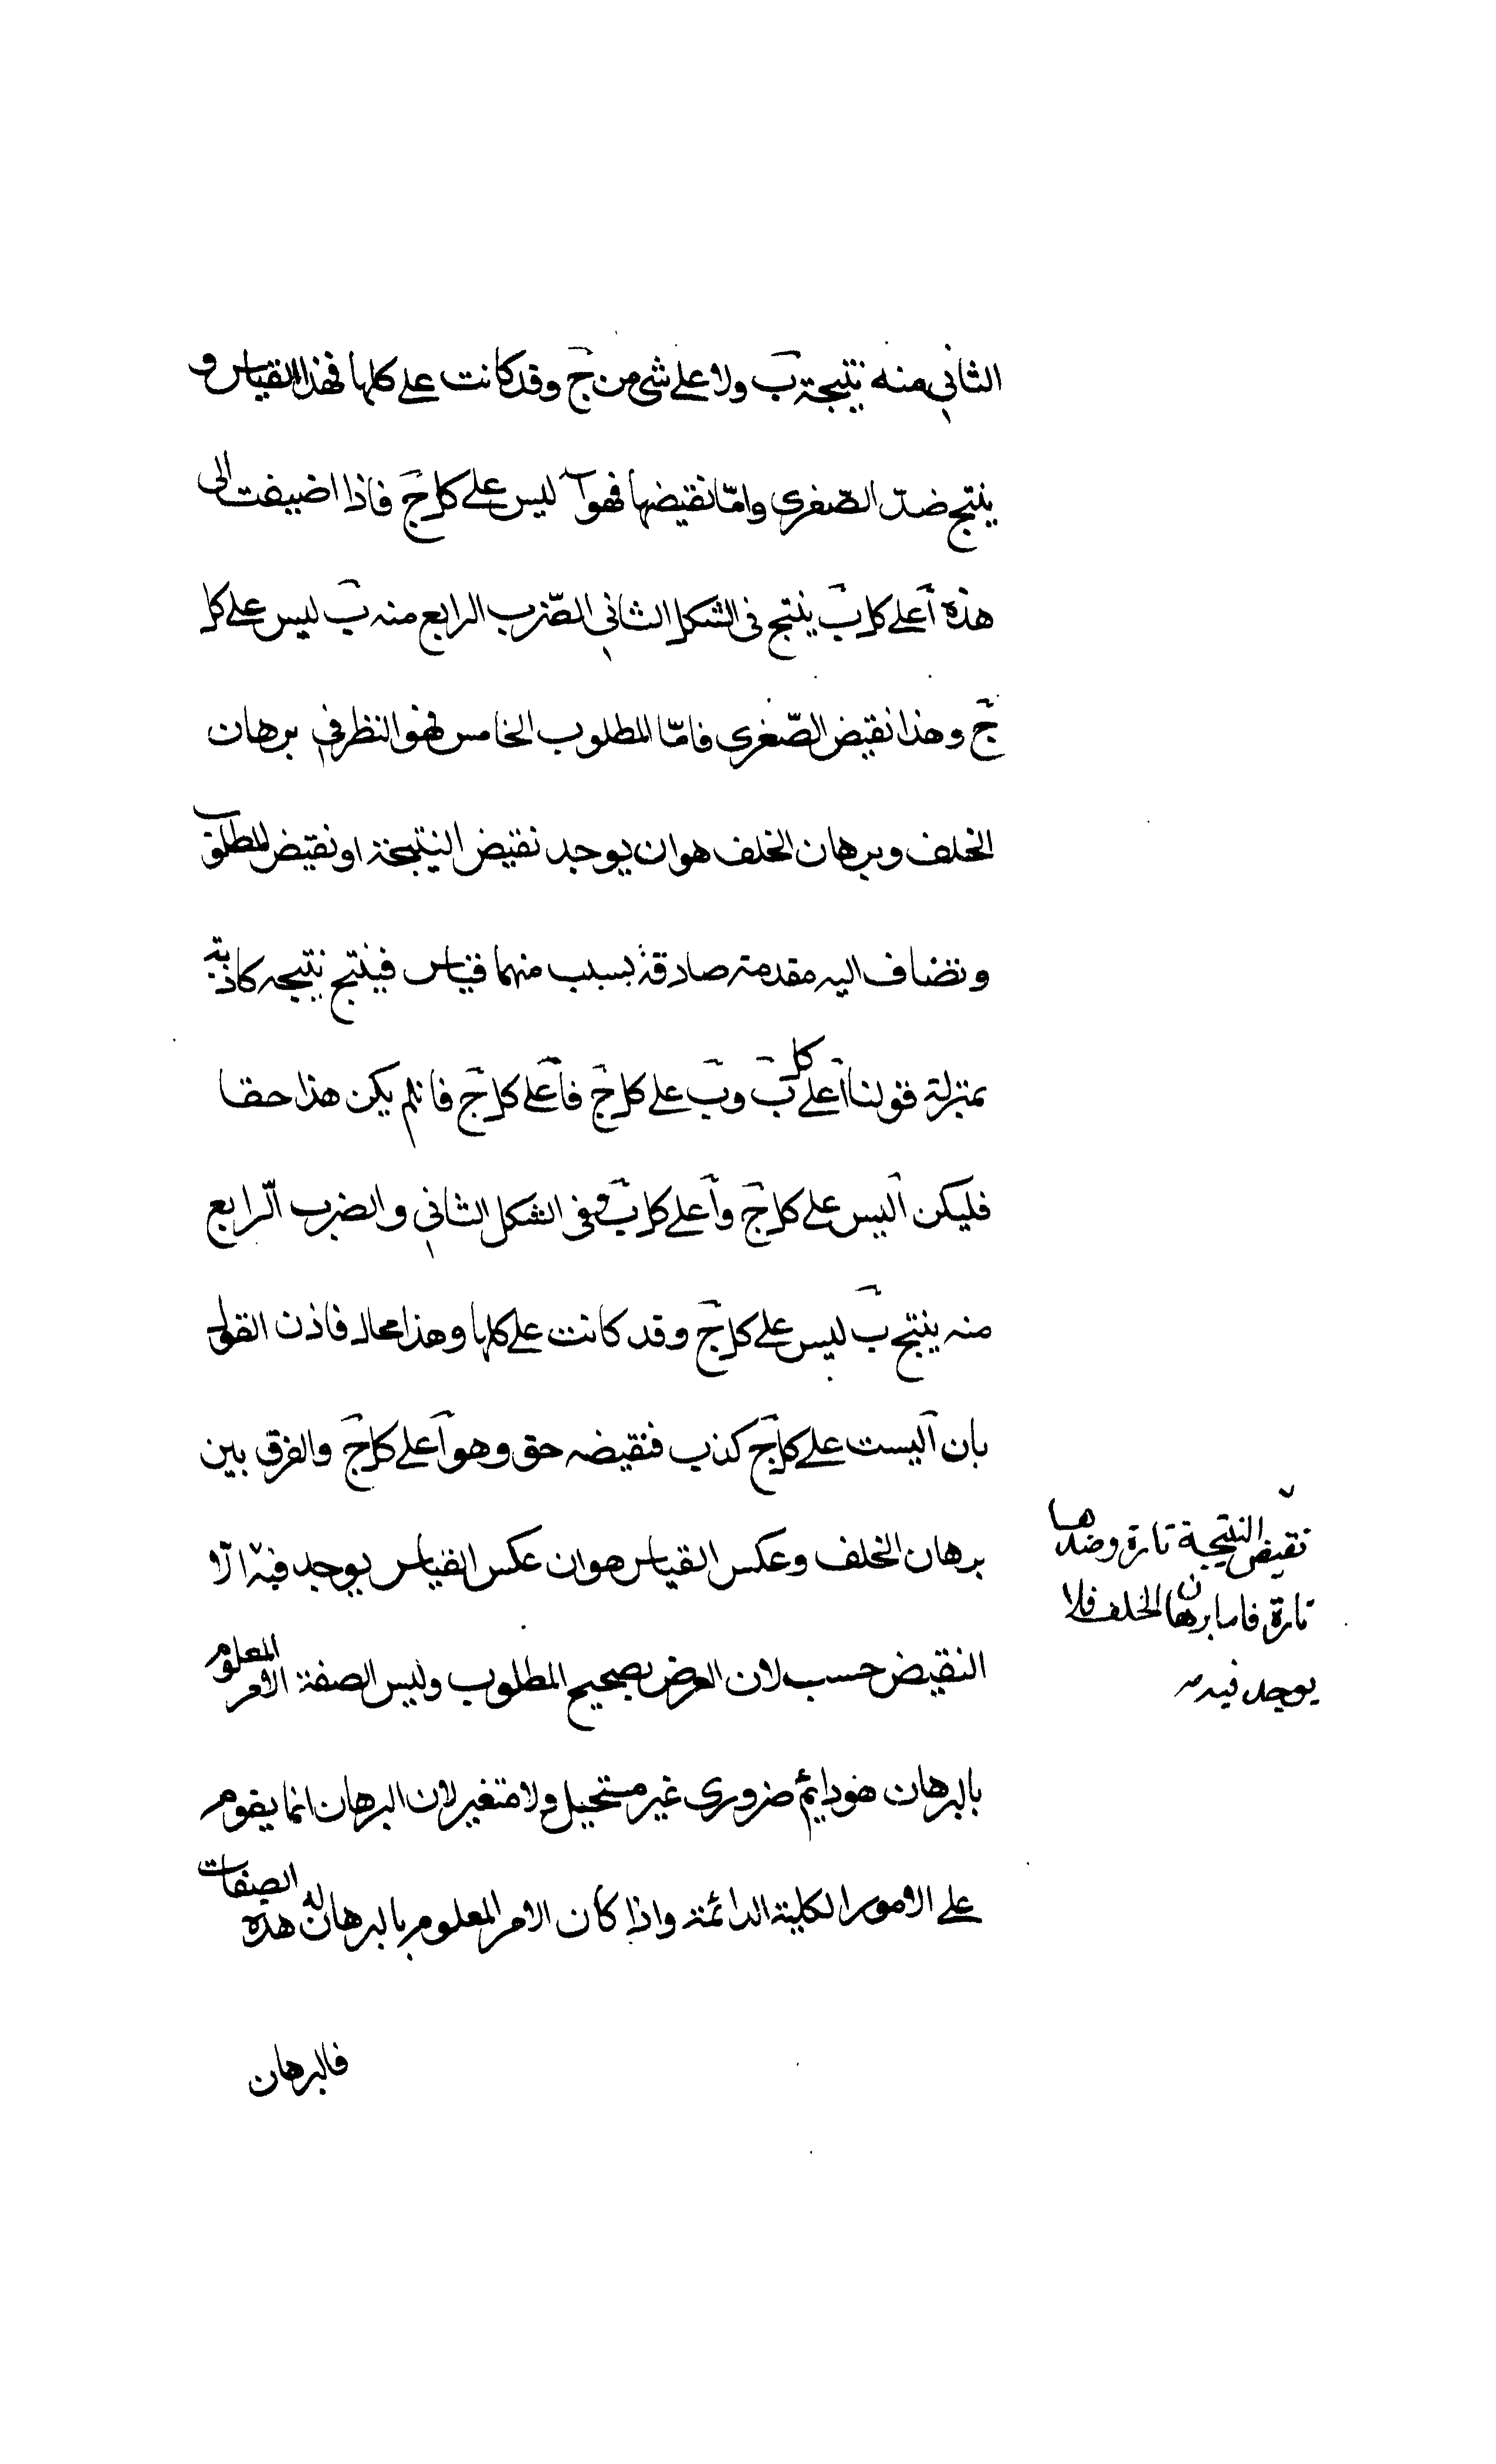 الثاني منه نتيجة بَ ولا على شئ من جَ وقد كانت على كلها فهذا القياس و
ينتج ضدّ الصّغرى وامّا نقيضها فهو آ ليس على كل جَ فاذا اضيفت الى
هذه آ على كل بَ ينتج فى الشكل الثاني الضّرب الرابع منه بَ ليس على كل
جَ وهذا نقيض الصّغرى فامّا المطلوب الخامس فهو النظر في برهان
الخلف وبرهان الخلف هو ان يوجد نقيض النتيجة او نقيض المطلوب
وتضاف اليه مقدمة صادقة بسبب منهما قياس فينتج نتيجه كاذبة
بمنزلة قولنا آ على كل بَ وبَ على كل جَ فآ على كل جَ فان لم يكن هذا حقا
فليكن آ ليس على كل جَ وآ على كل بَ وفى الشكل الثاني والضرب الرابع
منه ينتج بَ ليس على كل جَ وقد كانت على كلها وهذا محال فاذن القول
بان آ ليست على كل جَ كذب فنقيضه حق وهو آ على كل جَ والفرق بين
برهان الخلف وعكس القياس هو ان عكس القياس يوجد فيه الا
النقيض حسب لان الغرض تصحيح المطلوب وليس الصفة الامر المعلوم
بالبرهان فهو دايم ضرورى غير مستحيل ولا متغير لان البرهان انما يقوم
على الامور الكلية الدائمة واذا كان الامر المعلوم بالبرهان له هذه الصفات
فالبرهان
نقيض النتيجة تارة وضدها
تارة فاما برهان الخلف فلا
يوجد فيه